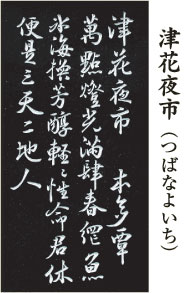 津花夜市(つばなよいち)
津花夜市 本多覃
萬點燈光満肆春網魚
氷海撲芳醇軽々性命君休
便是三天二地人